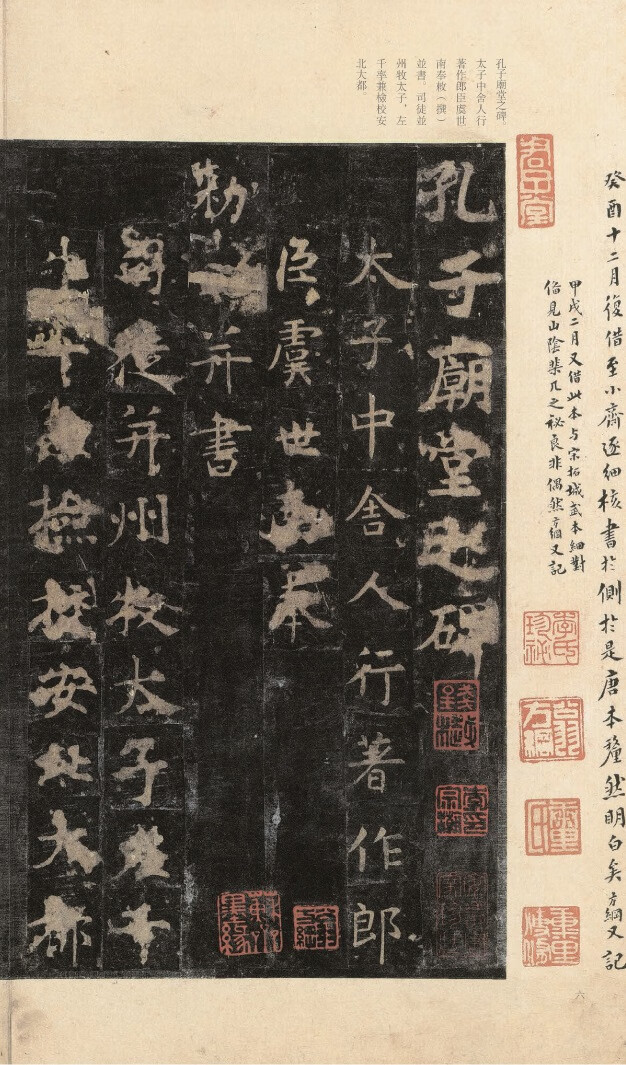 癸酉十二月復借至小齋逐細核書於側於是唐本釐然明白矣方綱又記
甲戌二月又借此本与宋拓城武本細對
俻見山陰棐几之秘良非偶然方綱又記
孔子廟堂之碑
太子中舍人行
著作郎臣虞世
南奉敕(撰)
並書。司徒並
州牧太子,左
千率兼檢校安
北大都。
孔子廟堂之碑
太子中舍人行著作郎
臣虞世南奉
勅 并書
司徒并州牧太子左千
牛率兼檢校安北大都
李氏珍祕
六